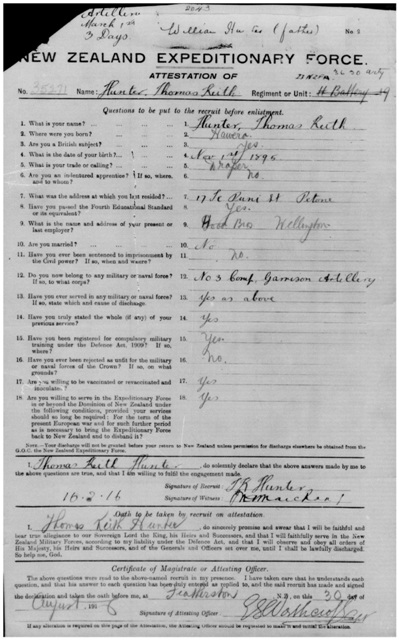 2043
Artillery
March 1st
3 Days
William Hunter (father)
No 2
NEW ZEALAND EXPEDITIONARY FORCE.
ATTESTATION OF
No. Name: Hunter, Thomas Keith Regiment or Unit:
Questions to be put to the recruit before enlistment.
1. What is your name? 1. Hunter, Thomas Keith
2. Where were you born? 2. Hawera
3. Are you a British subject? 3. Yes
4. What is the date of your birth? 4. Nov 1st 1895
5. What is your trade or calling? 5. Draper
6. Are you an indentured apprentice? If so, where, 6. No.
and to whom?
7. What was the address at which you last resided? 7. 17 Te Puni St Petone
8. Have you passed the Fourth Educational Standard 8. Yes.
or its equivalent?
9. What is the name and address of your present or 9. Bros Wellington
last employer?
10. Are you married? 10. No
11. Have you ever been sentenced to imprisonment by 11. No.
the Civil power? If so, when and where?
12. Do you now belong to any military or naval force? 12. No 3 Comp, Garrison Artillery
If so, to what corps?
13. Have you ever served in any military or naval force? 13. Yes as above
If so, state which and cause of discharge.
14. Have you truly stated the whole (if any) of your 14. Yes
previous service?
15. Have you been registered for compulsory military 15. Yes
training under the Defence Act, 1909? If so,
where?
16. Have you ever been rejected as unfit for the military 16. No.
or naval forces of the Crown? If so, on what
grounds?
17. Are you willing to be vaccinated or revaccinated and 17. Yes
inoculated?
18. Are you willing to serve in the Expeditionary Force 18. Yes
in or beyond the Dominion of New Zealand under
the following conditions, provided your services
should so long be required: For the term of the
present European war and for such further period
as is necessary to bring the Expeditionary Force
back to New Zealand and to disband it?
NOTE.—Your discharge will not be granted before your return to New Zealand unless permission for discharge elsewhere be obtained from the
G.O.C. the New Zealand Expeditionary Force.
I, Thomas Keith Hunter, do solemnly declare that the above answers made by me to
the above questions are true, and that I am willing to fulfil the engagement made.
Signature of Recruit: T K Hunter
16-2-16 Signature of Witness:
Oath to be taken by recruit on attestation.
I, Thomas Keith Hunter, do sincerely promise and swear that I will be faithful and
bear true allegiance to our Sovereign Lord the King, his Heirs and Successors, and that I will faithfully serve in the New
Zealand Military Forces, according to my liability under the Defence Act, and that I will observe and obey all orders of
His Majesty, his Heirs and Successors, and of the Generals and Officers set over me, until I shall be lawfully discharged.
So help me, God.
Certificate of Magistrate or Attesting Officer.
The above questions were read to the above-named recruit in my presence. I have taken care that he understands each
question, and that his answer to each question has been duly entered as replied to, and the said recruit has made and signed
the declaration and taken the oath before me, at Featherston N.Z., on this 30 day of
August 1916
Signature of Attesting Officer: